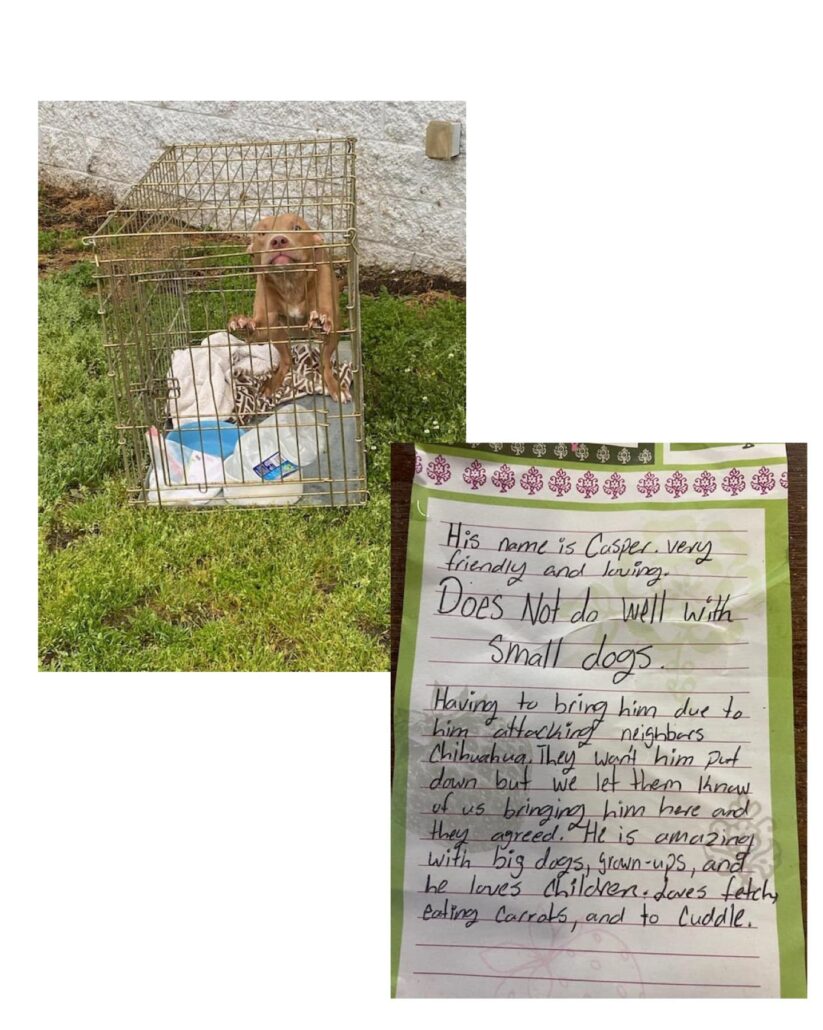 His name is Casper. very
friendly and loving.
Does Not do well with
small dogs.
Having to bring him due to
him attacking neighbors
Chihuahua. They want him put
down but we let them know
of us bringing him here and
they agreed. He is amazing
with big dogs, grown-ups, and
he loves children. Loves fetch,
eating carrots, and to cuddle.